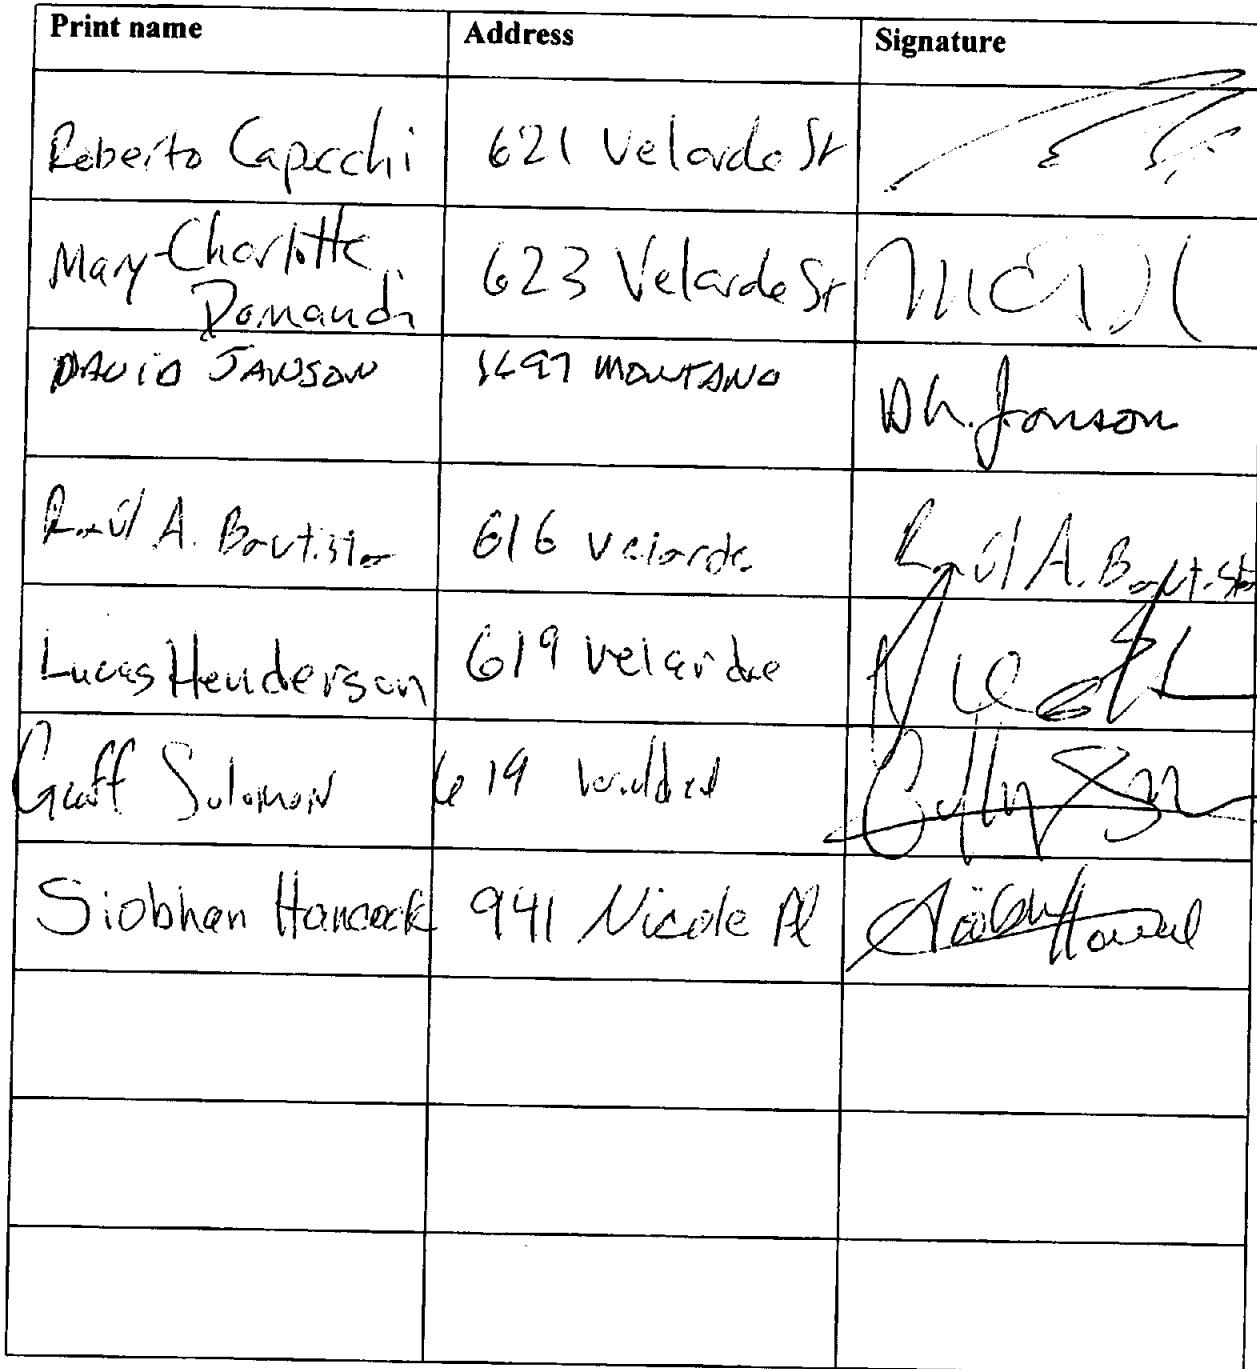 Print name Address Signature
Roberto Capecchi 621 Velarde St
Mary-Charlotte 623 Velarde St
Domandi
DAVID JANSON 1697 MONTANO D h. Janson
Raúl A. Bautista 616 Velarde Raúl A. Bautista
Lucas Henderson 619 Velardue
Geoff Solomon 619
Siobhan Hancock 941 Nicole Pl